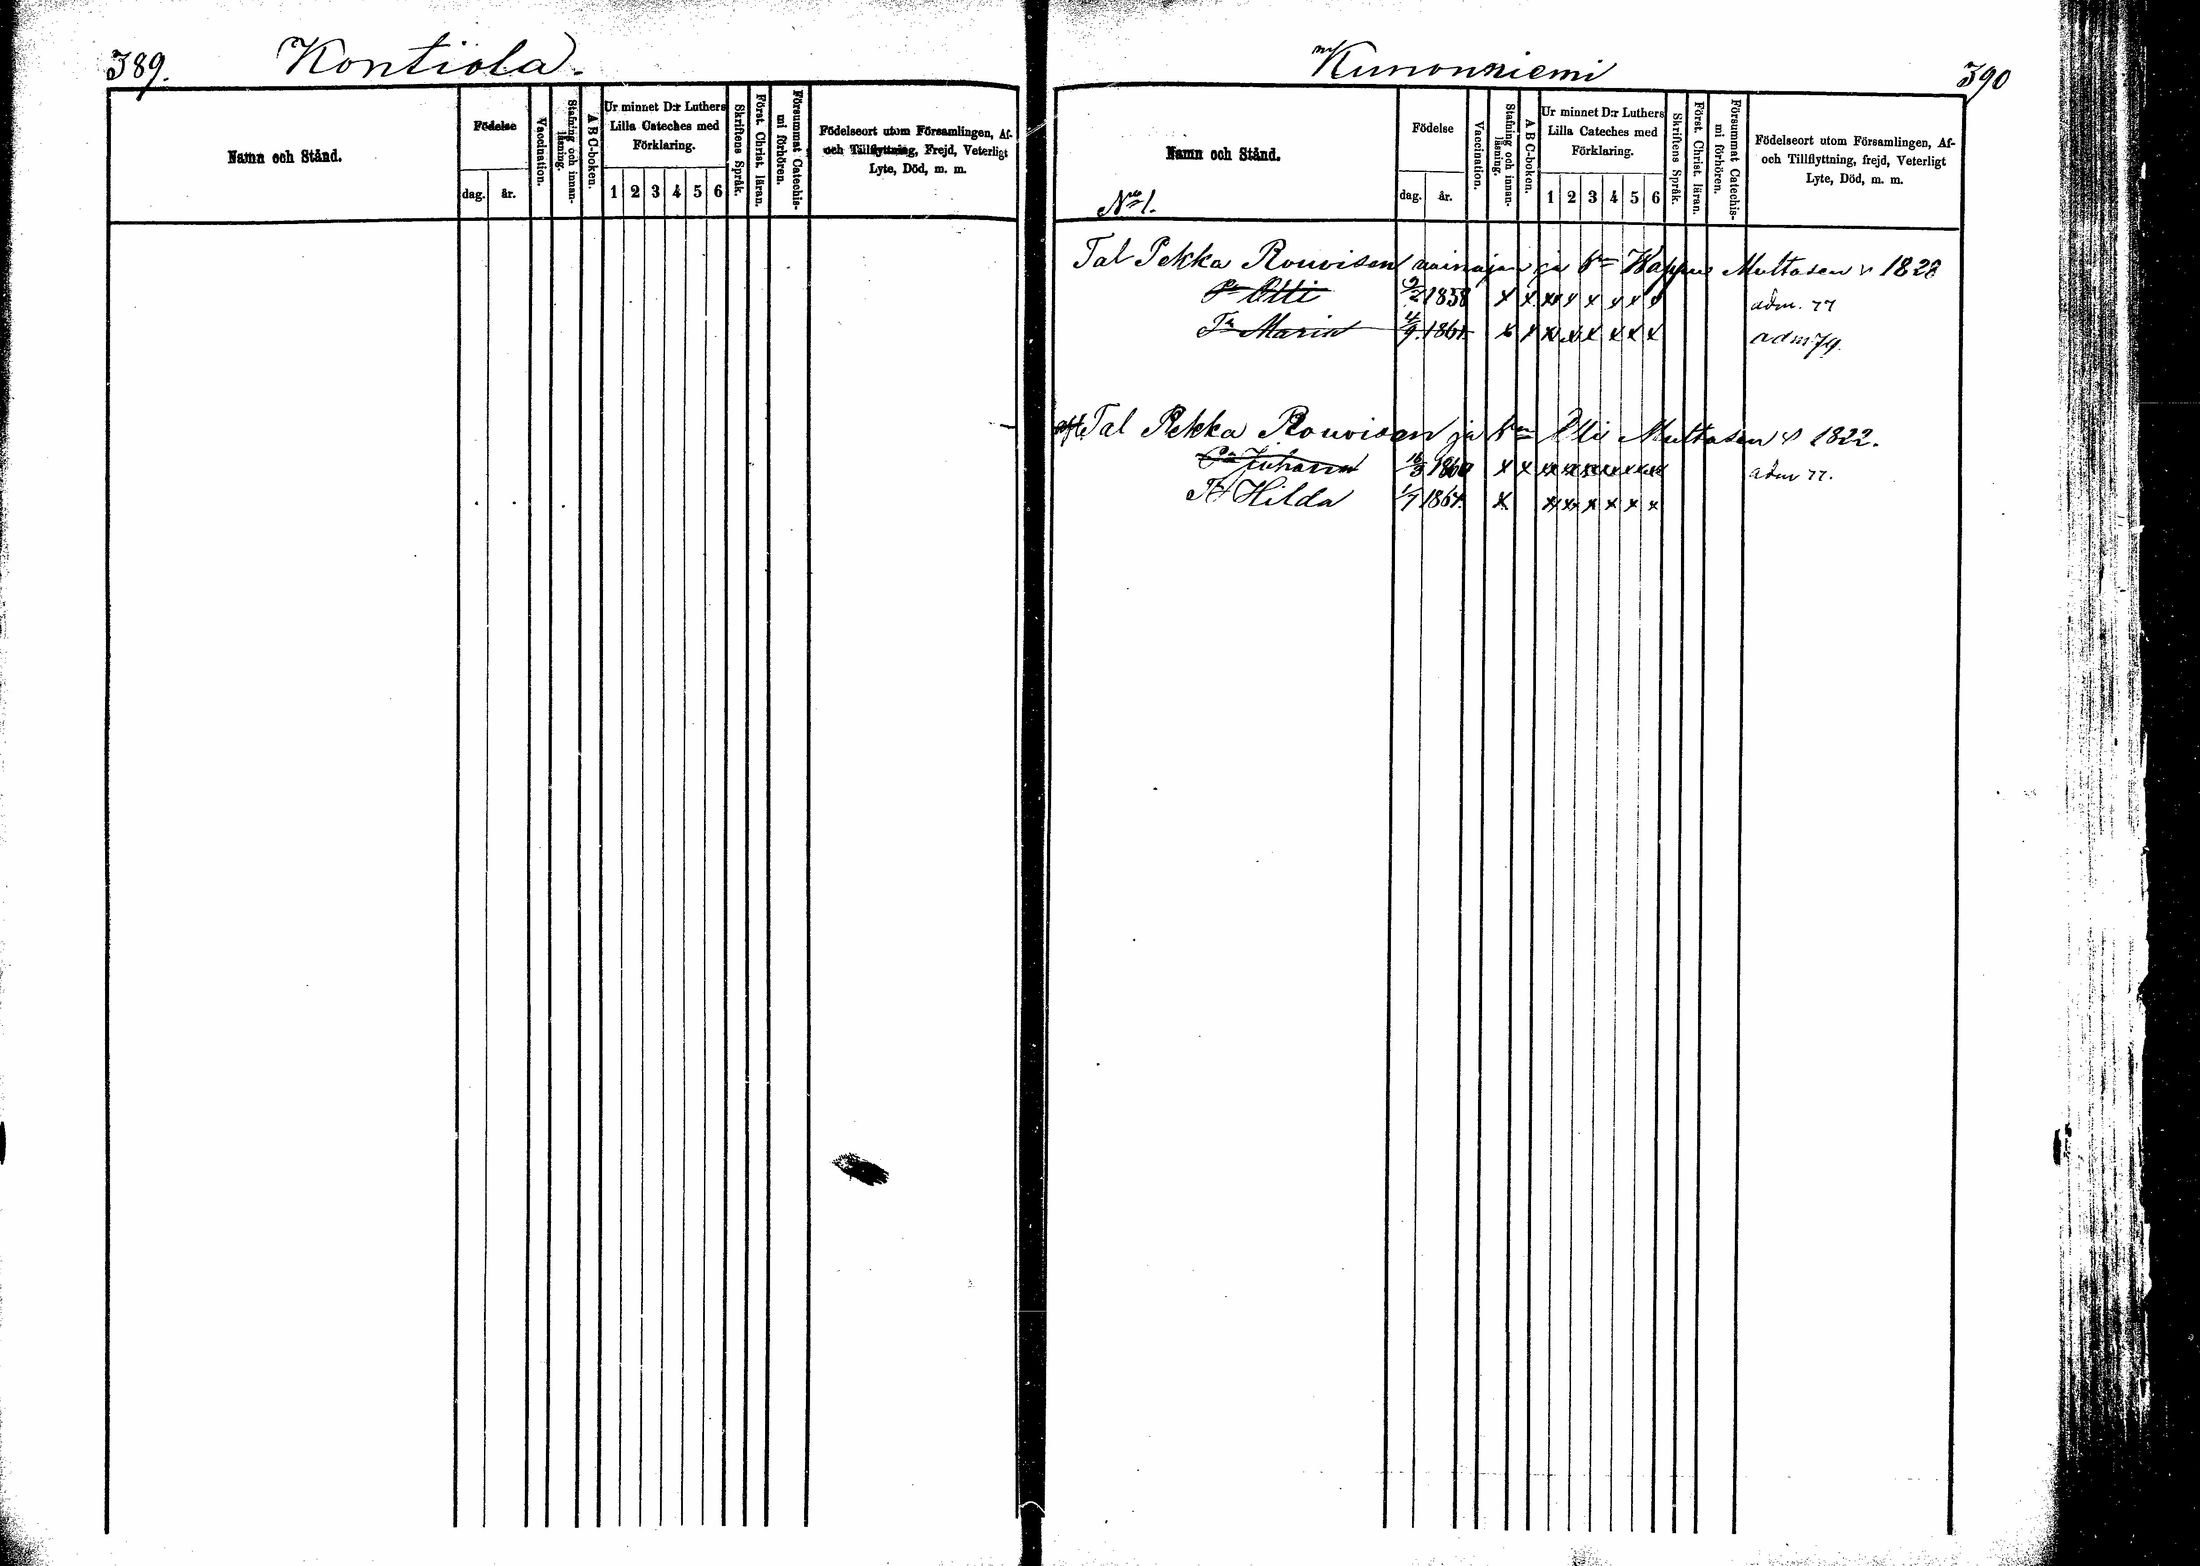 389.
Kontiola.
Namn och Stånd.
Födelse
dag.
år.
Vaccination.
Stafning och innan-
läsning.
A B C-boken.
Ur minnet D:r Luthers
Lilla Cateches med
Förklaring.
1 2 3 4 5 6
Skriftens Språk.
Först. Christ. läran.
Försummat Catechis-
mi förhören.
Födelseort utom Församlingen, Af-
och Tillflyttning, Frejd, Veterligt
Lyte, Död, m. m.
Kunonniemi
390
Namn och Stånd.
No 1.
Födelse
dag.
år.
Vaccination.
Stafning och innan-
läsning.
A B C-boken.
Ur minnet D:r Luthers
Lilla Cateches med
Förklaring.
1 2 3 4 5 6
Skriftens Språk.
Först. Christ. läran.
Försummat Catechis-
mi förhören.
Födelseort utom Församlingen, Af-
och Tillflyttning, frejd, Veterligt
Lyte, Död, m. m.
Tal Pekka Rouvisen vainajan ja Wappu Multasen 1828
Pa Olli 9/2 1858 x x x x x x x x adm. 77
Tr Maria 4/9 1861 x x x x x x x x adm 79.
Tal Pekka Rouvisen ja Multasen 1822.
Pa Juhana 16/3 1860 x x x x x x x x adm 77.
Tr Hilda 1/7 1864. x x x x x x x